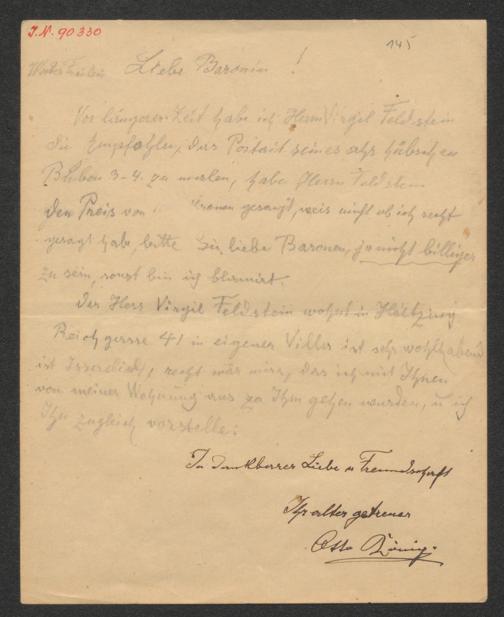 J.N. 90330
145
Liebe Baronin !
Vor längerer Zeit habe ich Herrn Virgil Feldstein
Sie Empfohlen, das Portait seines sehr hübschen
Buben 3-4. zu malen, habe Herrn Feldstein
den Preis von Kronen gesagt, weis nicht ob ich recht
gesagt habe, bitte Sie, liebe Baronin, ja nicht billiger
zu sein, sonst bin ich blamirt.
Der Herr Virgil Feldstein wohnt in Hietzing
Reichgasse 41 in eigener Villa ist sehr wohlhabend
ist Isserelied, recht wär mirs, das ich mit Ihnen
von meiner Wohnung aus zu Ihm gehen würden, u ich
Ihn zugleich vorstelle.
In dankbarer Liebe u Freundschaft
Ihr alter getreuer
Otto König.